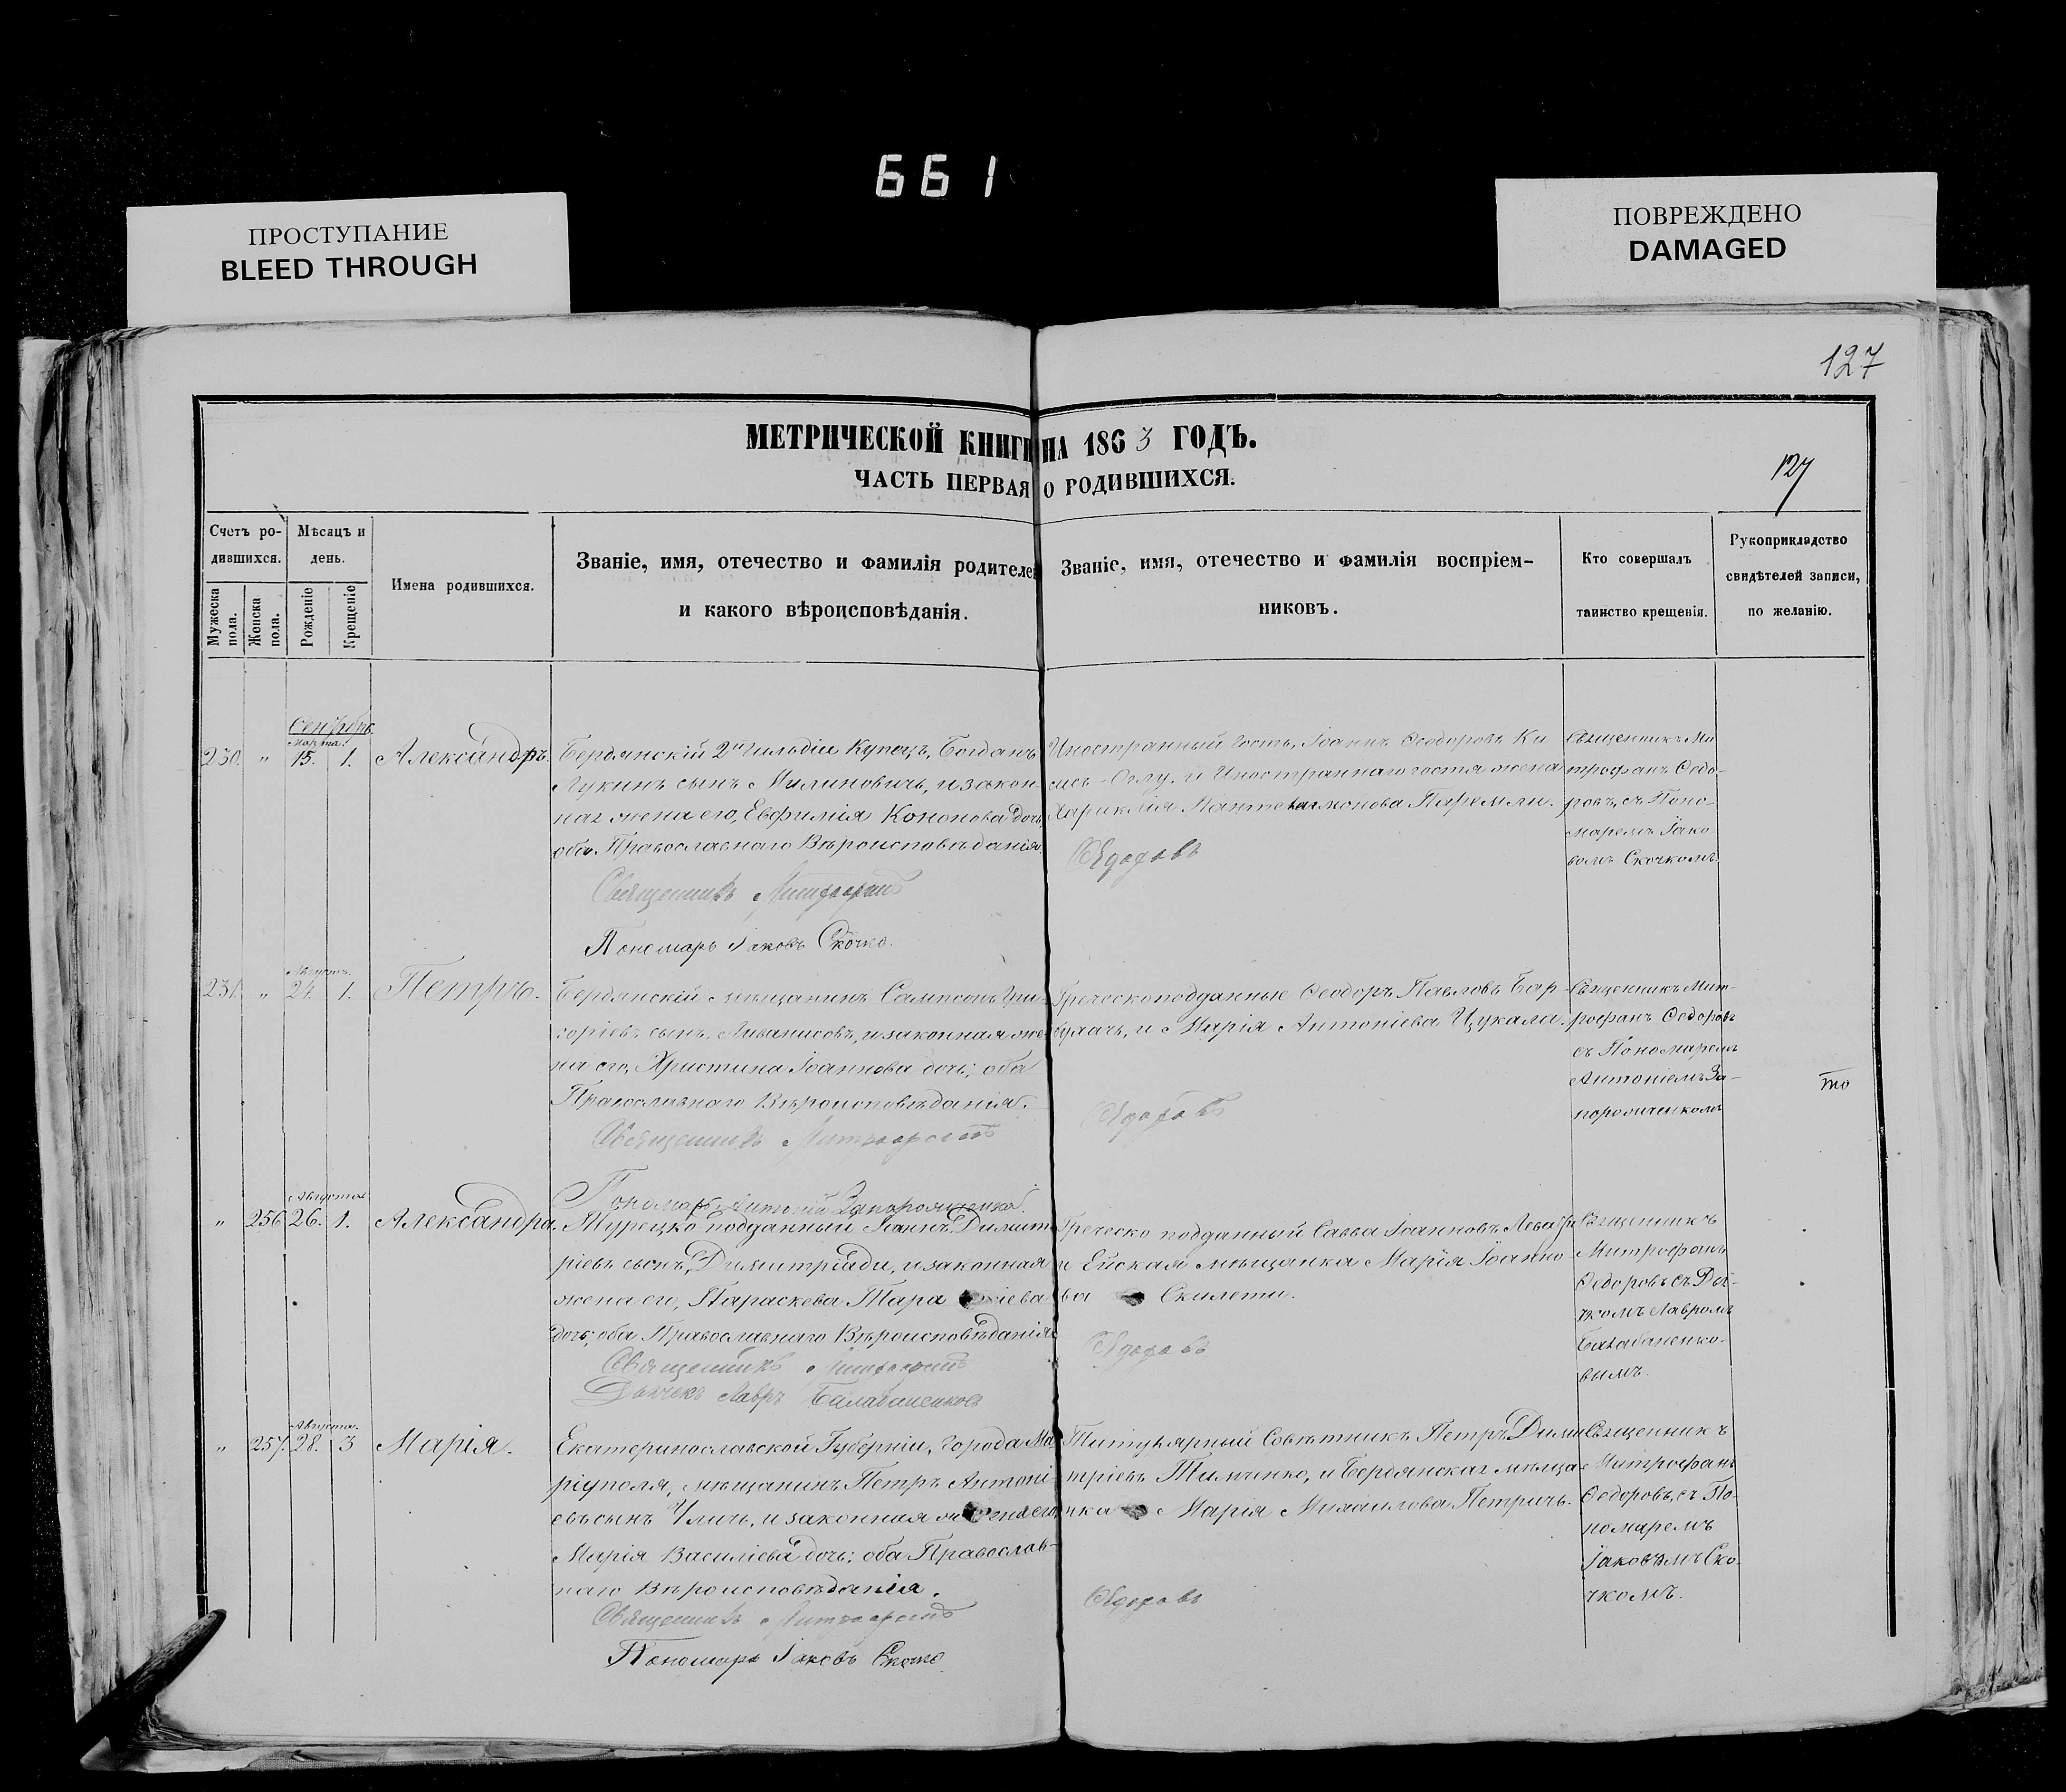 661
ПРОСТУПАНИЕ
BLEED THROUGH
ПОВРЕЖДЕНО
DAMAGED
127
МЕТРИЧЕСКОЙ КНИГИ НА 1863 ГОДЪ.
ЧАСТЬ ПЕРВАЯ О РОДИВШИХСЯ.
127
Счетъ ро-
дившихся.
Мужеска пола.
Женска пола.
Мѣсяцъ и
день.
Рожденіе
Крещеніе
Имена родившихся.
Званіе, имя, отечество и фамилія родителей
и какого вѣроисповѣданія.
Званіе, имя, отечество и фамилія воспріем-
никовъ.
Кто совершалъ
таинство крещенія.
Рукоприкладство
свидѣтелей записи,
по желанію.
Сентябрь
Марта.
230. " 15. 1. Александръ.
Бердянскій 2й гильдіи Купецъ, Богданъ
Лукинъ сынъ Милиновичъ, и закон-
ная жена его, Евфимія Кононова дочь,
оба Православнаго Вѣроисповѣданія.
Священникъ Митрофанъ
Пономарь Іаковъ Скочко.
Иностранный гость, Іоаннъ Ѳеодоровъ Ки
-Оглу, и Иностраннаго гостя жена
Хариклія Пантелеимонова
Ѳедоровъ
Священникъ Ми
трофанъ Ѳедо-
ровъ, съ Поно-
маремъ Іако
вомъ Скочкомъ.
Августа.
231. " 24. 1. Петръ.
Бердянскій мѣщанинъ Сампсонъ Гри-
горіевъ сынъ, и законная же
на его, Христина Іоаннова дочь; оба
Православнаго Вѣроисповѣданія.
Священникъ Митрофанъ
Пономарь Антоній Запорожченко.
Греческоподданные Ѳеодоръ Павловъ Бар-
и Марія Антоніева Цукала.
Ѳедоровъ
Священникъ Мит-
рофанъ Ѳедоровъ
съ Пономаремъ
Антоніемъ За-
порожченкомъ
то
Августа
" 256 26. 1. Александра.
Турецко подданный Іоаннъ Димит
ріевъ сынъ, Димитріади, и законная
жена его, Параскева
дочь; оба Православнаго Вѣроисповѣданія
Священникъ Митрофанъ
Дьячекъ Лавръ Балабаненковъ
Греческо подданный Савва Іоанновъ
и Ейская мѣщанка Марія Іоанно
ва Скилети.
Ѳедоровъ
Священникъ
Митрофанъ
Ѳедоровъ съ Дья-
чкомъ Лавромъ
Балабаненко-
вымъ.
Августа.
" 257. 28. 3 Марія.
Екатеринославской Губерніи, Города Ма
ріуполя, мѣщанинъ Петръ Антоні-
евъ сынъ Уличъ, и законная жена его,
Марія Василіева дочь; оба Православ-
наго Вѣроисповѣданія.
Священникъ Митрофанъ
Пономарь Іаковъ Скочко
Титулярный Совѣтникъ Петръ Дими
тріевъ Тимченко, и Бердянская мѣща
нка Марія Михаилова Петричъ.
Ѳедоровъ
Священникъ
Митрофанъ
Ѳедоровъ, съ По-
номаремъ
Іаковомъ Ско-
чкомъ.